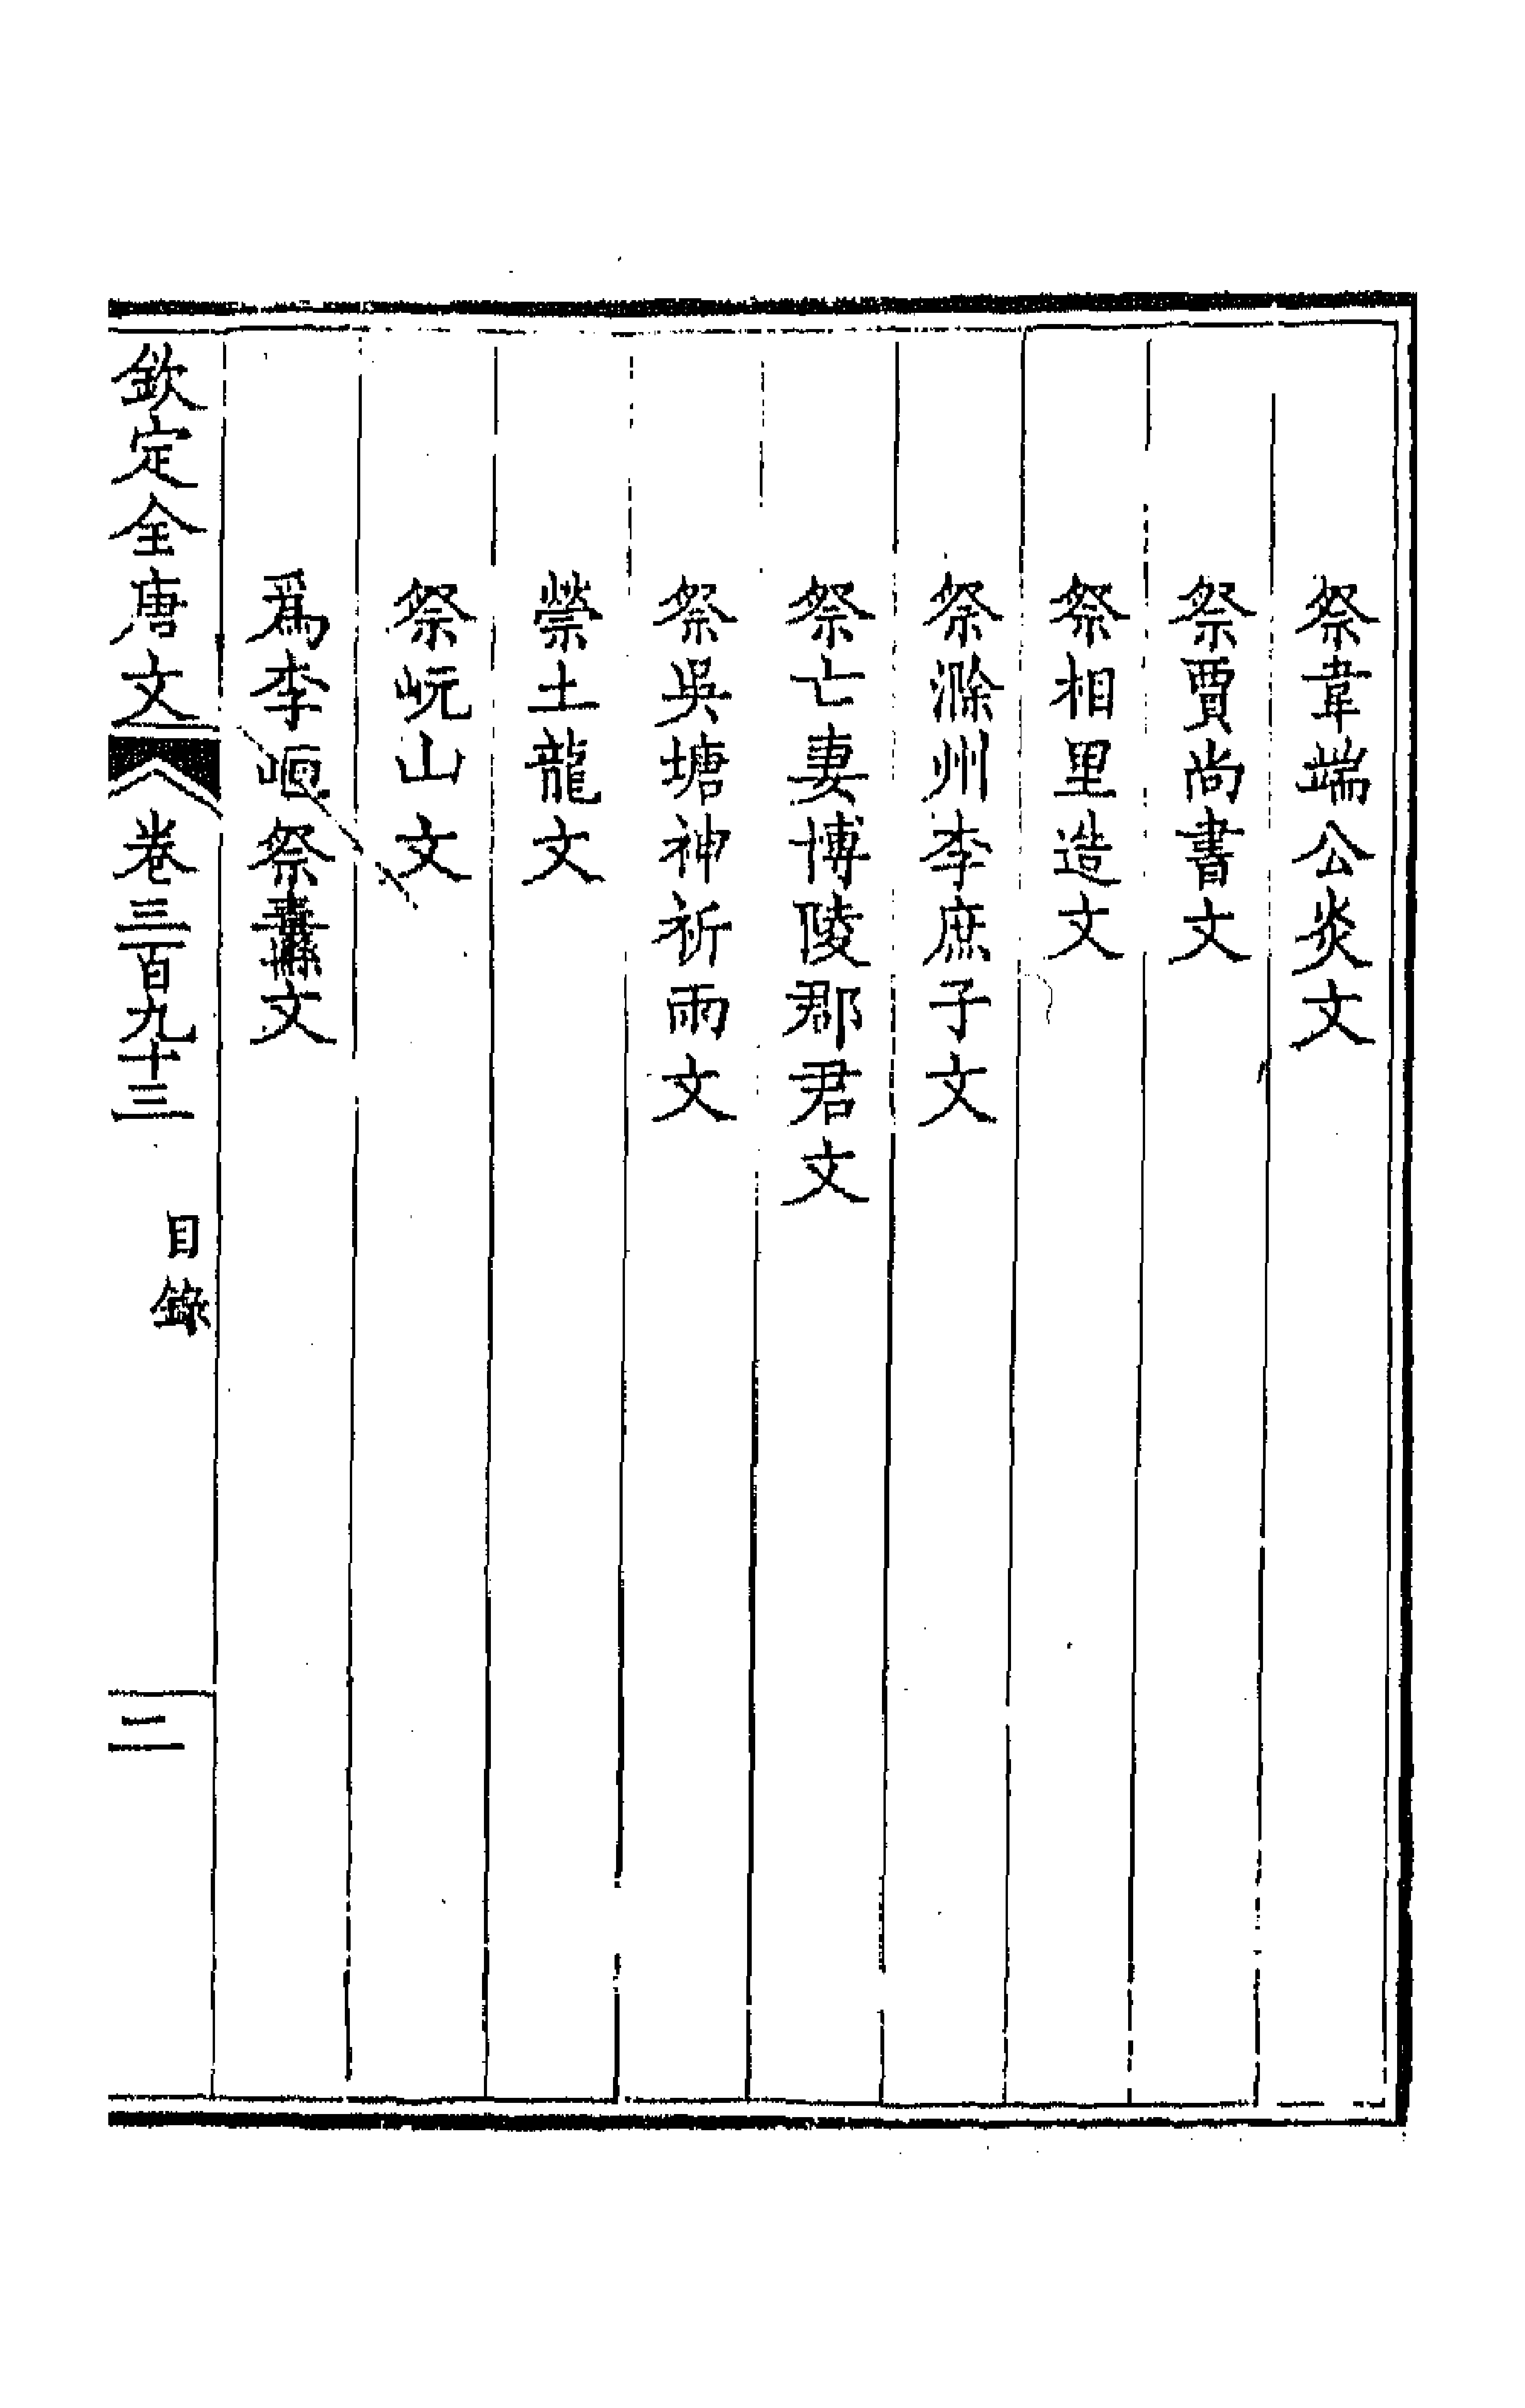 祭韋端公炎文
祭賈尚書文
祭相里造文
祭滁州李庶子文
祭亡妻博陵郡君文
祭吳塘神祈雨文
禜土龍文
祭岏山文
爲李峘祭纛文
欽定全唐文 卷三百九十三 目錄 二